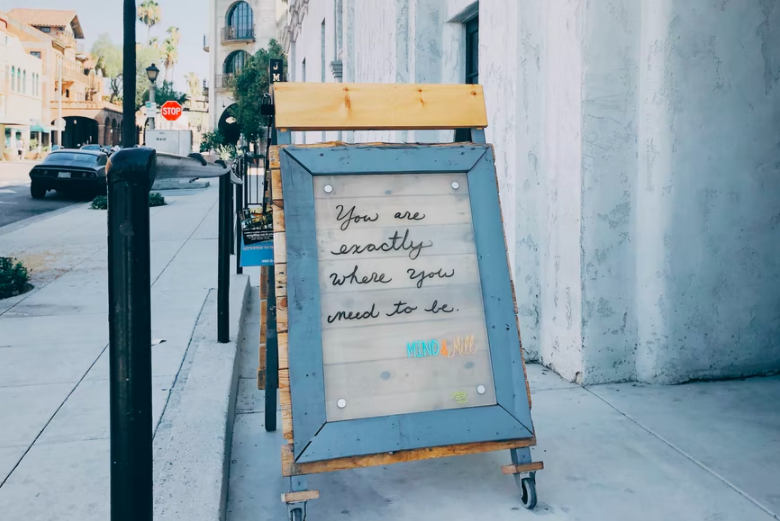 STOP
You are
exactly
where you
need to be.
MEAD & MILL